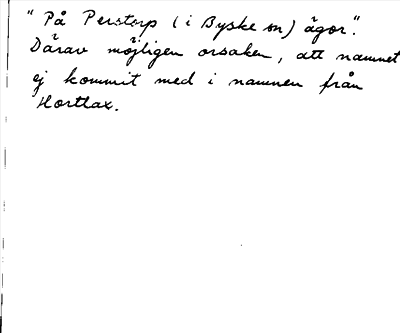 "På Perstorp (i Byske sn) ägor".
Därav möjligen orsaken, att namnet
ej kommit med i namnen från
Hortlax.